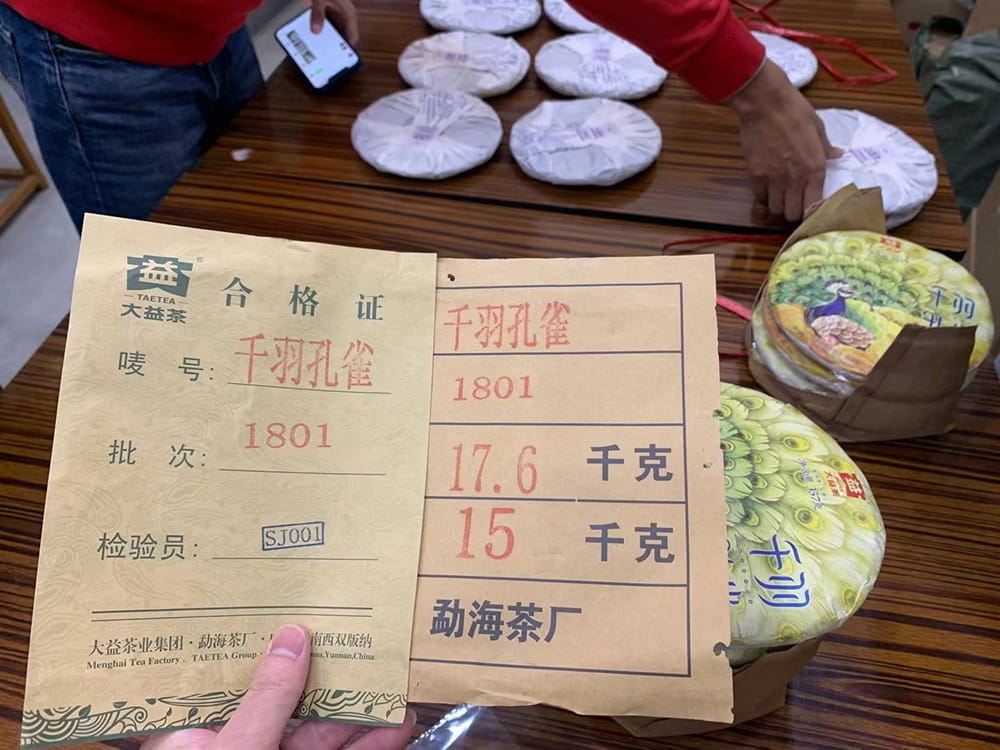 益®
TAETEA
大益茶
合格证
唛 号：千羽孔雀
批 次：1801
检验员：SJ001
大益茶业集团·勐海茶厂·
南西双版纳
Menghai Tea Factory, TAETEA Group
Yunnan,China
千羽孔雀
1801
17.6 千克
15 千克
勐海茶厂
千羽
千羽
益
大益
357克